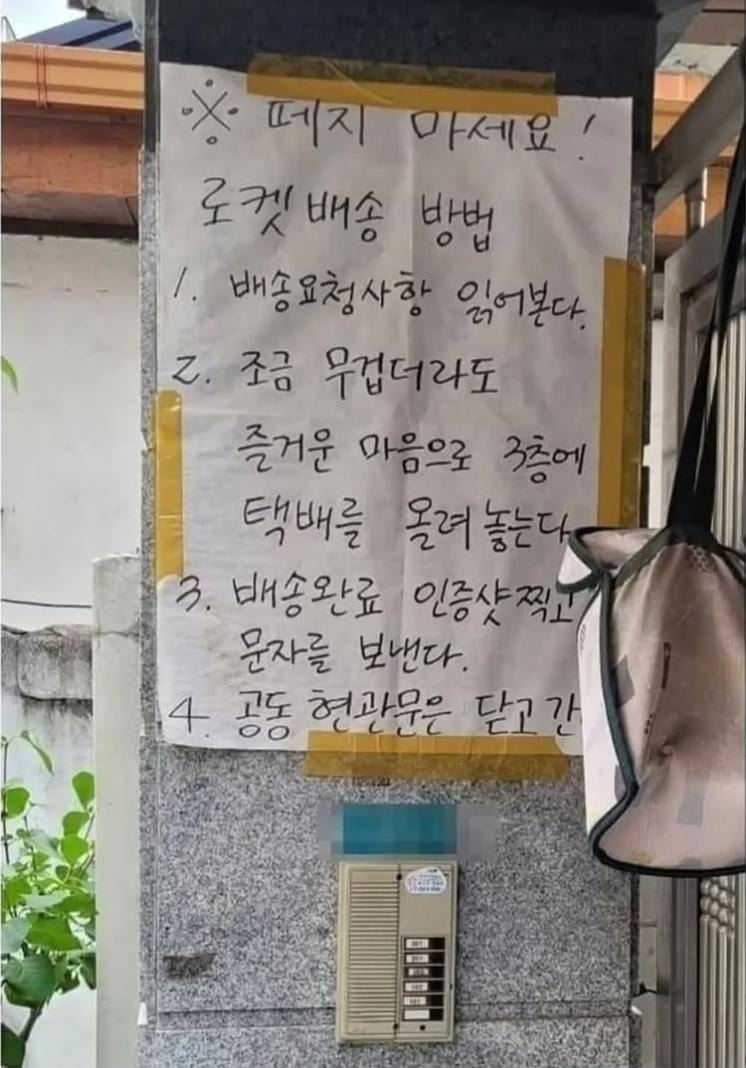 ※ 떼지 마세요!
로켓배송 방법
1. 배송요청사항 읽어본다.
2. 조금 무겁더라도
즐거운 마음으로 3층에
택배를 올려놓는다
3. 배송완료 인증샷찍고
문자를 보낸다.
4. 공동현관문은 닫고간